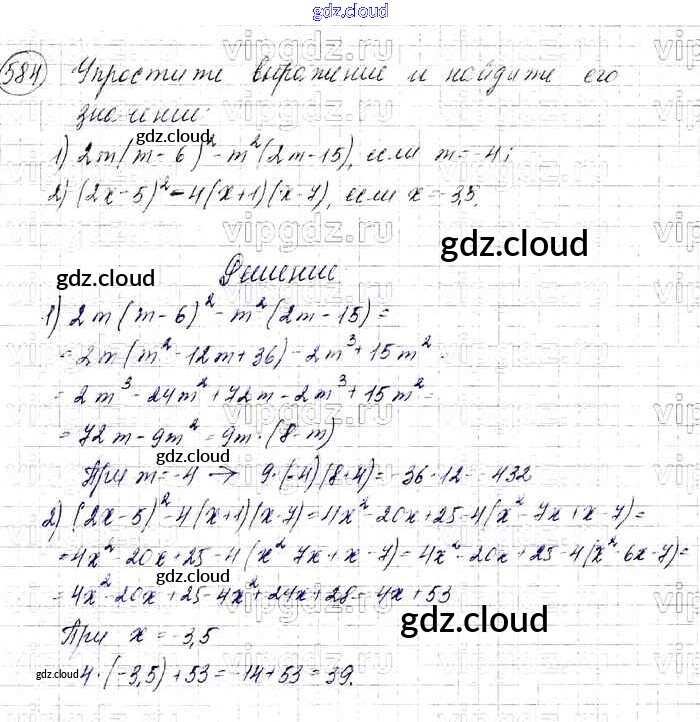 gdz.cloud
584 Упростите выражение и найдите его
значение:
gdz.cloud
1) 2m(m-6)² - m²(2m-15), если m=-4;
2) (2x-5)² - 4(x+1)(x-7), если x=-3,5.
gdz.cloud
Решение
gdz.cloud
1) 2m(m-6)² - m²(2m-15) =
= 2m(m² - 12m + 36) - 2m³ + 15m² =
= 2m³ - 24m² + 72m - 2m³ + 15m² =
= 72m - 9m² = 9m·(8-m)
При m=-4 → 9·(-4)(8+4) = -36·12 = -432
gdz.cloud
2) (2x-5)² - 4(x+1)(x-7) = 4x² - 20x + 25 - 4(x² - 7x + x - 7) =
= 4x² - 20x + 25 - 4(x² 7x + x - 7) = 4x² - 20x + 25 - 4(x² 6x - 7) =
gdz.cloud
= 4x² - 20x + 25 - 4x² + 24x + 28 = 4x + 53
При x = -3,5
gdz.cloud
gdz.cloud
4·(-3,5) + 53 = -14 + 53 = 39.